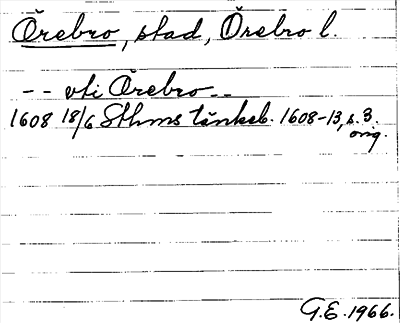 Örebro, stad, Örebro l.
-- uti Örebro --
1608 18/6 Sthms tänkeb. 1608-13, s. 3.
orig.
G.E. 1966.